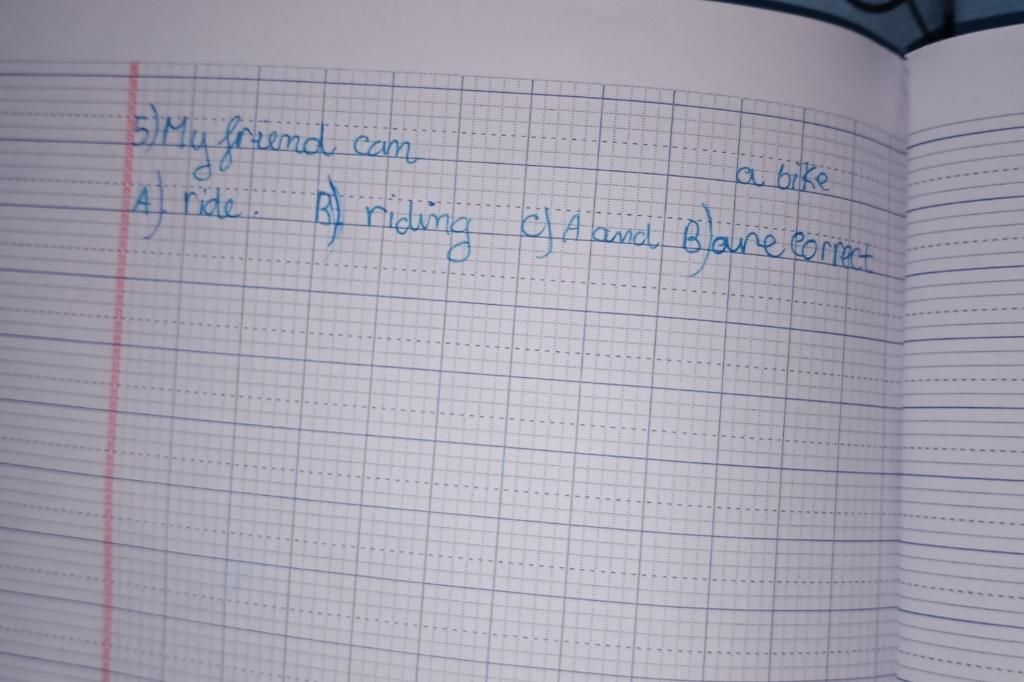 5) My friend can a bike
A) ride. B) riding C) A and B) are correct